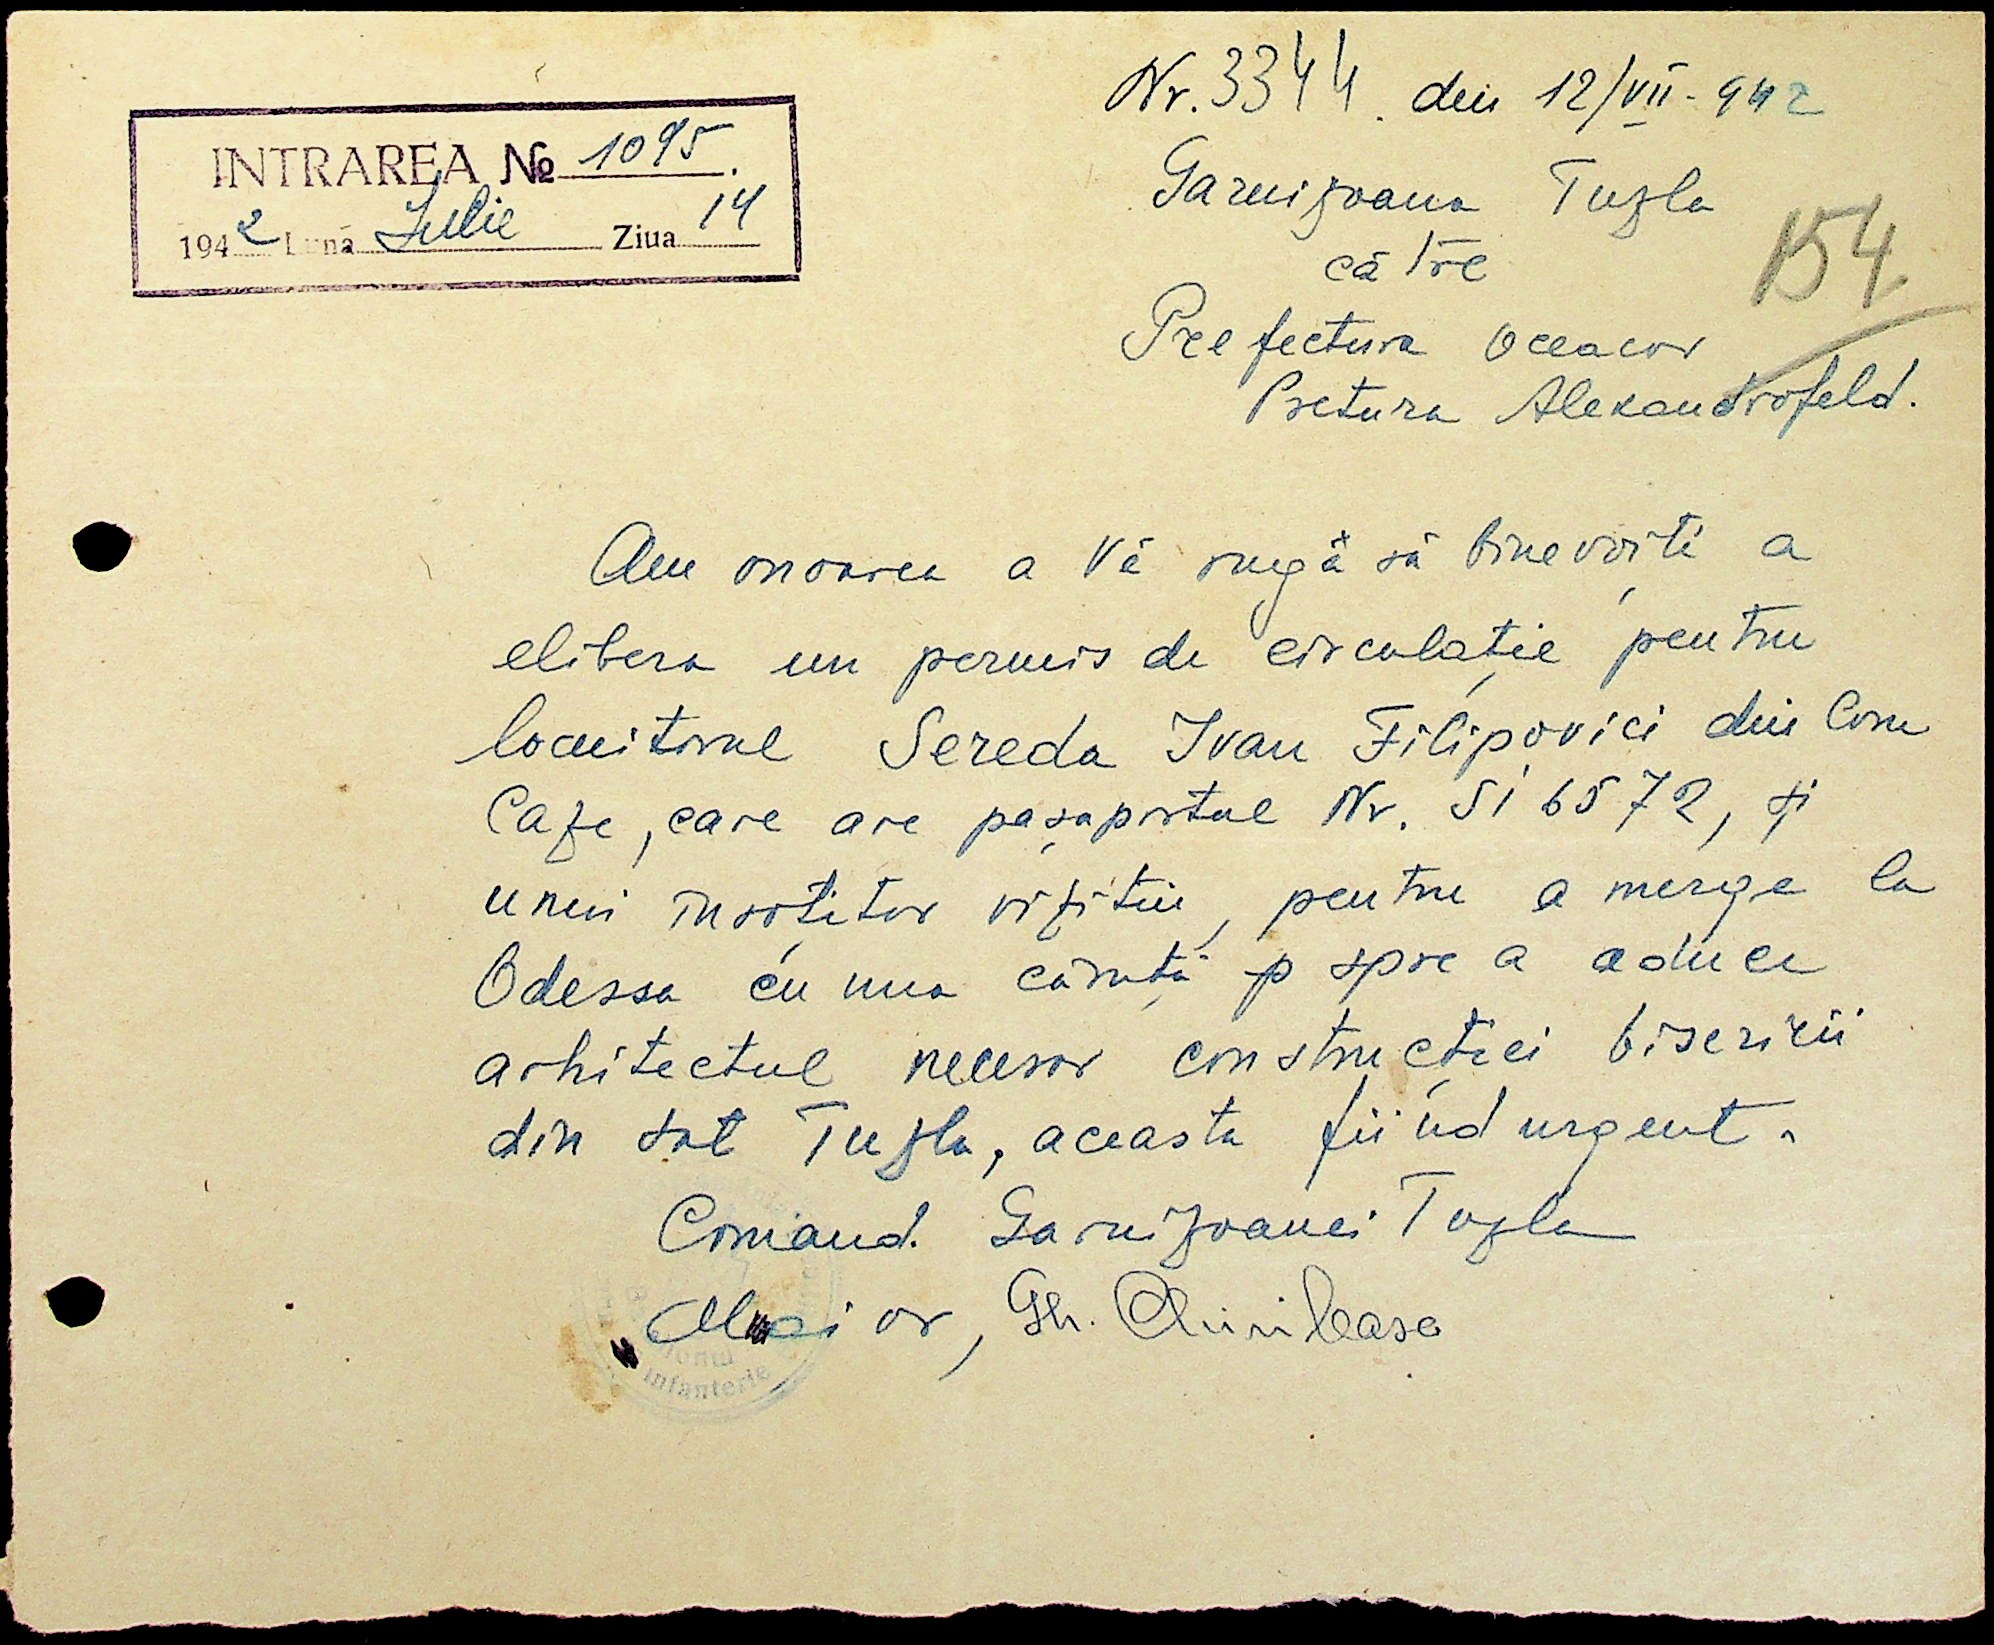 INTRAREA № 1095.
1942 Luna Iulie Ziua 14
Nr. 3344. din 12/VII-942
Garnizoana Tuzla
către
154
Prefectura Oceacov
Pretura Alexandrofeld.
Am onoarea a Vă rugă să binevoiți a
elibera un permis de circulație pentru
locuitorul Sereda Ivan Filipovici din Com
Caze, care are pașaportul Nr. SI 6572, și
unui însoțitor vizitiu, pentru a merge la
Odessa cu una căruță p spre a aduce
arhitectul necesar construcției bisericii
din sat Tuzla, aceasta fiind urgent.
Comand. Garnizoanei Tuzla
Maior, Gh.
infanterie